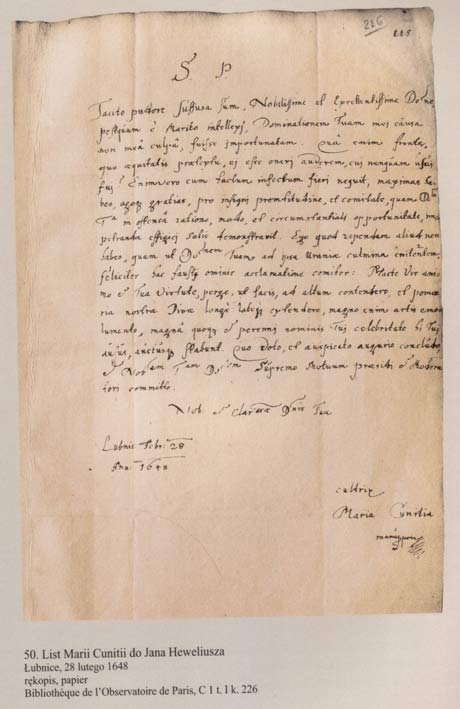 226
225
S. P.
Tacito pudore suffusa sum, Nobilissime et Excellentissime Dne
postquam è Marito intellexi, Dominationem Tuam mei causâ
non meâ culpâ, fuisse importunatam. Quâ enim fronte,
quo æquitatis prætextu, ei esse oneri auderem, cui nunquam usui
fui? Enimvero cum factum infectum fieri nequit, maximas ha-
beo, agoque gratias, pro insigni promtitudine, et comitate, quam
Ta in offensâ ratione, modo, et circumstantiali opportunitate, im-
petranda effigiei satis demonstravit. Ego quod rependam aliud non
habeo, quam ut Dnem Tuam, ad ipsa Uraniæ culmina enitentem,
feliciter hac fausti ominis acclamatione comiter: Macte Vir ani-
mo et Tua virtute, perge, ut facis, ad altum contendere, et pomœ-
ria nostræ Divæ longè latèque extendere, magno cum artis emo-
lumento, magnâ quoque et perenni nominis Tui celebritate
stabunt. Quo voto, et auspicato augurio concludo,
et Supremo Motuum præsidi et Modera-
tori committo.
Nob. et Claræ Dnis Tuæ
Lubnic Febr. 28
Ann. 1648
cultrix
Maria Cunitia
manu ppria
50. List Marii Cunitii do Jana Heweliusza
Łubnice, 28 lutego 1648
rękopis, papier
Bibliothèque de l'Observatoire de Paris, C I t. I k. 226